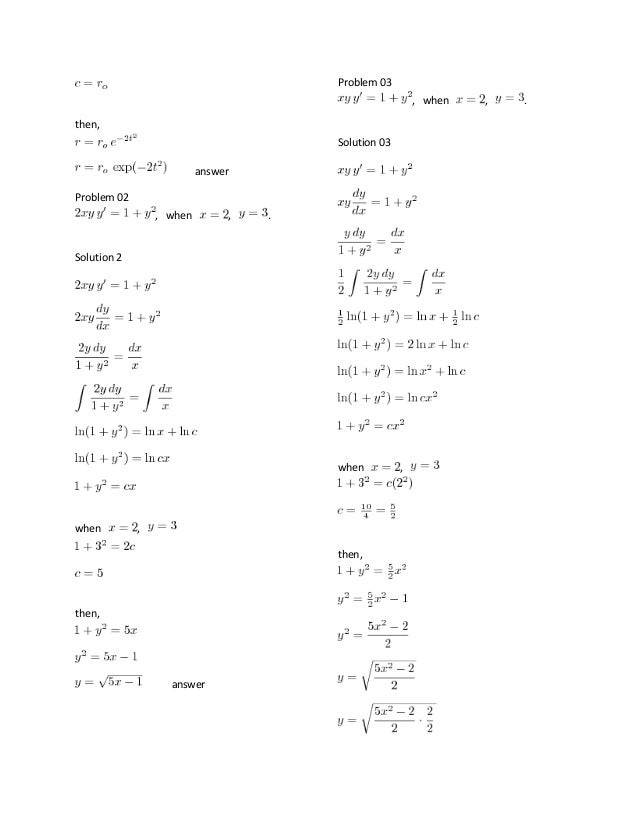 c = rₒ
then,
r = rₒ e^(−2t²)
r = rₒ exp(−2t²) answer
Problem 02
2xy y′ = 1 + y², when x = 2, y = 3.
Solution 2
2xy y′ = 1 + y²
2xy dy/dx = 1 + y²
2y dy/(1 + y²) = dx/x
∫ 2y dy/(1 + y²) = ∫ dx/x
ln(1 + y²) = ln x + ln c
ln(1 + y²) = ln cx
1 + y² = cx
when x = 2, y = 3
1 + 3² = 2c
c = 5
then,
1 + y² = 5x
y² = 5x − 1
y = √(5x − 1) answer
Problem 03
xy y′ = 1 + y², when x = 2, y = 3.
Solution 03
xy y′ = 1 + y²
xy dy/dx = 1 + y²
y dy/(1 + y²) = dx/x
1/2 ∫ 2y dy/(1 + y²) = ∫ dx/x
½ ln(1 + y²) = ln x + ½ ln c
ln(1 + y²) = 2 ln x + ln c
ln(1 + y²) = ln x² + ln c
ln(1 + y²) = ln cx²
1 + y² = cx²
when x = 2, y = 3
1 + 3² = c(2²)
c = 10/4 = 5/2
then,
1 + y² = 5/2 x²
y² = 5/2 x² − 1
y² = (5x² − 2)/2
y = √((5x² − 2)/2)
y = √((5x² − 2)/2 · 2/2)